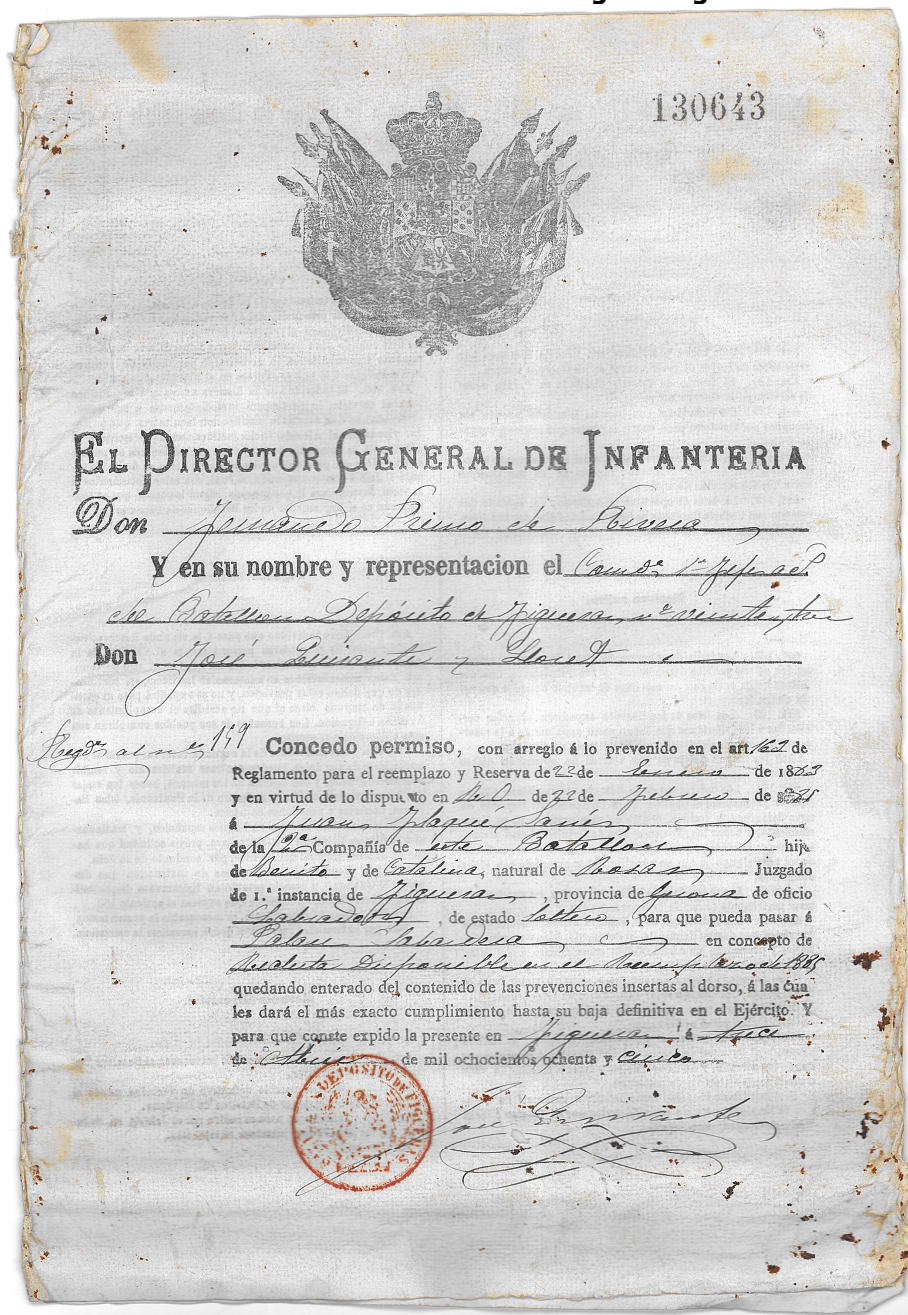 130643
EL DIRECTOR GENERAL DE INFANTERIA
Don Fernando Primo de Rivera
Y en su nombre y representacion el Comde 1er Jefe acl
de Batallon Depósito de Figueras nº veintitres
Don José Guirante y Lloret
Regdo al nº 159
Concedo permiso, con arreglo á lo prevenido en el art. 162 de
Reglamento para el reemplazo y Reserva de 22 de Enero de 1883
y en virtud de lo dispuesto en R.O. de 22 de Febrero de 85
á Juan Flaqué Sanés
de la 2ª Compañía de este Batallon hijo
de Benito y de Catalina, natural de Rosas Juzgado
de 1.ª instancia de Figueras, provincia de Gerona de oficio
Labrador, de estado soltero, para que pueda pasar á
Palau Sabardera en concepto de
Recluta Disponible en el Reemplazo de 1885,
quedando enterado del contenido de las prevenciones insertas al dorso, á las cua
les dará el más exacto cumplimiento hasta su baja definitiva en el Ejército. Y
para que conste expido la presente en Figueras á trece
de Abril de mil ochocientos ochenta y cinco
DEPÓSITO DE FIGUERAS
José Guirante